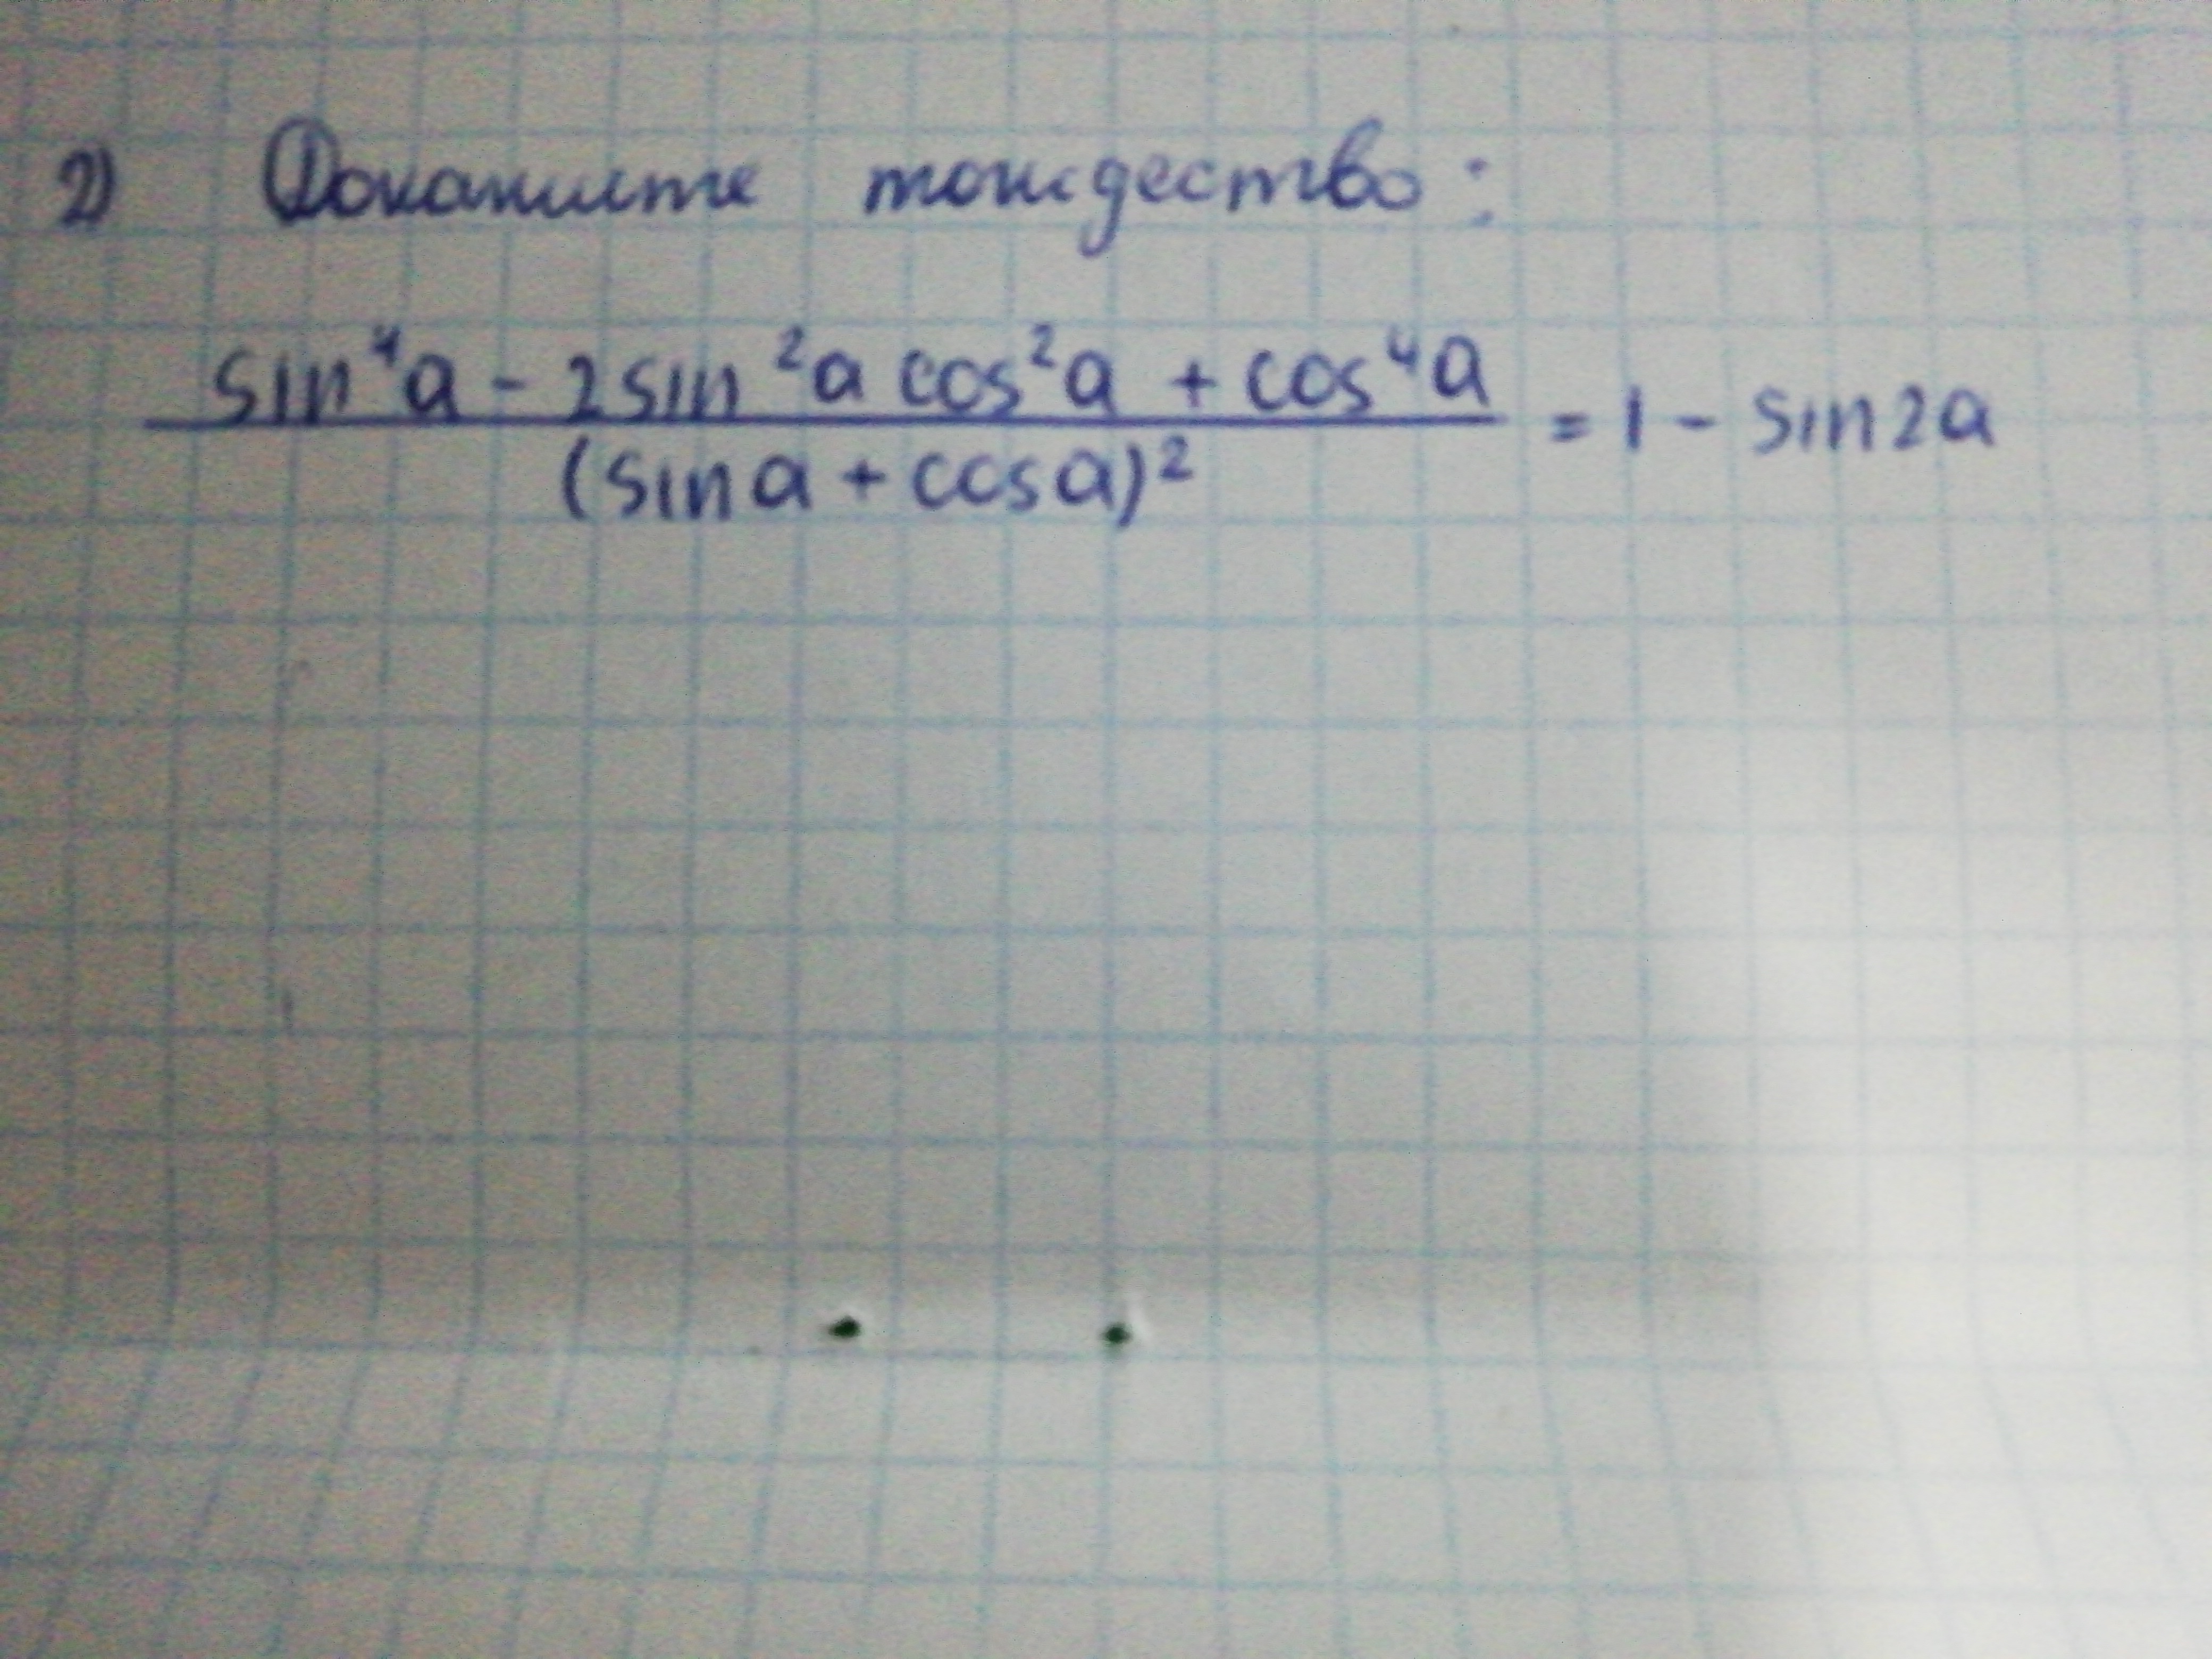 2) Докажите тождество:
sin⁴a - 2sin²a cos²a + cos⁴a
(sin a + cos a)²
= 1 - sin2a